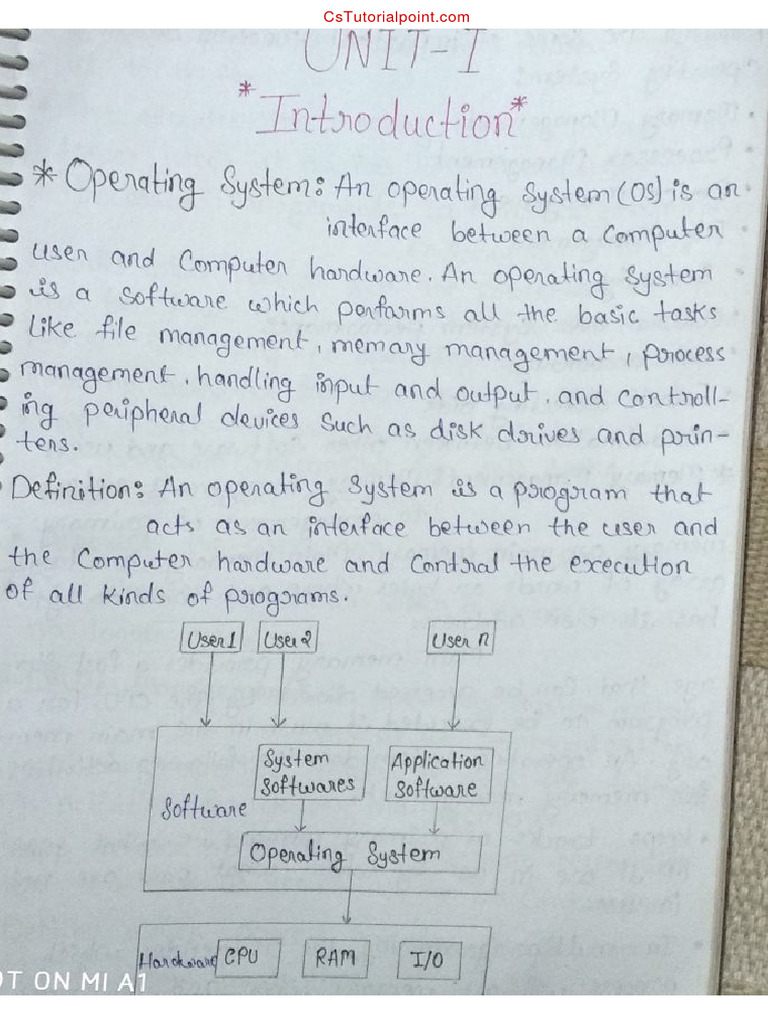 CsTutorialpoint.com
UNIT-I
*Introduction*
* Operating System: An operating System (OS) is an
interface between a Computer
user and Computer hardware. An operating System
is a Software which perfarms all the basic tasks
Like file management, memory management, process
management, handling input and output, and controll-
ing peripheral devices such as disk drives and prin-
ters.
Definition: An operating System is a program that
acts as an interface between the user and
the Computer hardware and Control the execution
of all kinds of programs.
User 1 User 2 User n
System Application
Softwares Software
Software
Operating System
Hardware CPU RAM I/O
OT ON MI A1